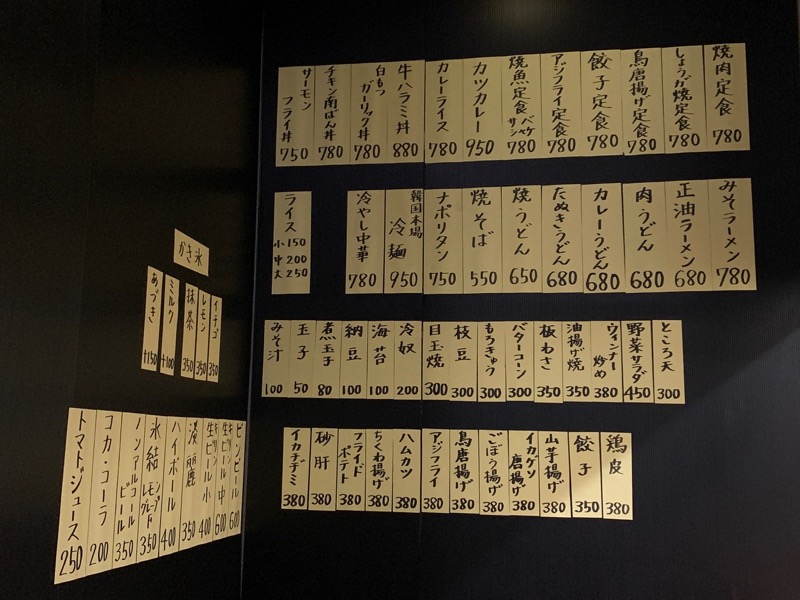 焼肉定食 780
しょうが焼定食 780
鳥唐揚げ定食 780
餃子定食 780
アジフライ定食 780
焼魚定食 サバ シャケ 780
カツカレー 950
カレーライス 780
牛ハラミ丼 880
白もつ ガーリック丼 780
チキン南ばん丼 780
サーモン フライ丼 750
みそラーメン 780
正油ラーメン 680
肉うどん 680
カレーうどん 680
たぬきうどん 680
焼うどん 650
焼そば 550
ナポリタン 750
韓国本場 冷麺 950
冷やし中華 780
ライス
小 150
中 200
大 250
ところ天 300
野菜サラダ 450
ウィンナー炒め 380
油揚げ焼 350
板わさ 350
バターコーン 300
もろきゅう 300
枝豆 300
目玉焼 300
冷奴 200
海苔 100
納豆 100
煮玉子 80
玉子 50
みそ汁 100
鶏皮 380
餃子 350
山芋揚げ 380
イカゲソ唐揚げ 380
ごぼう揚げ 380
鳥唐揚げ 380
アジフライ 380
ハムカツ 380
ちくわ揚げ 380
フライドポテト 380
砂肝 380
イカチヂミ 380
かき氷
イチゴ 350
レモン 350
抹茶 350
ミルク +100
あづき +150
ビンビール 600
キリン 生ビール 中 600
キリン 生ビール 小 400
淡麗 350
ハイボール 400
氷結 レモン グレープF 350
ノンアルコール ビール 350
コカ・コーラ 200
トマトジュース 250